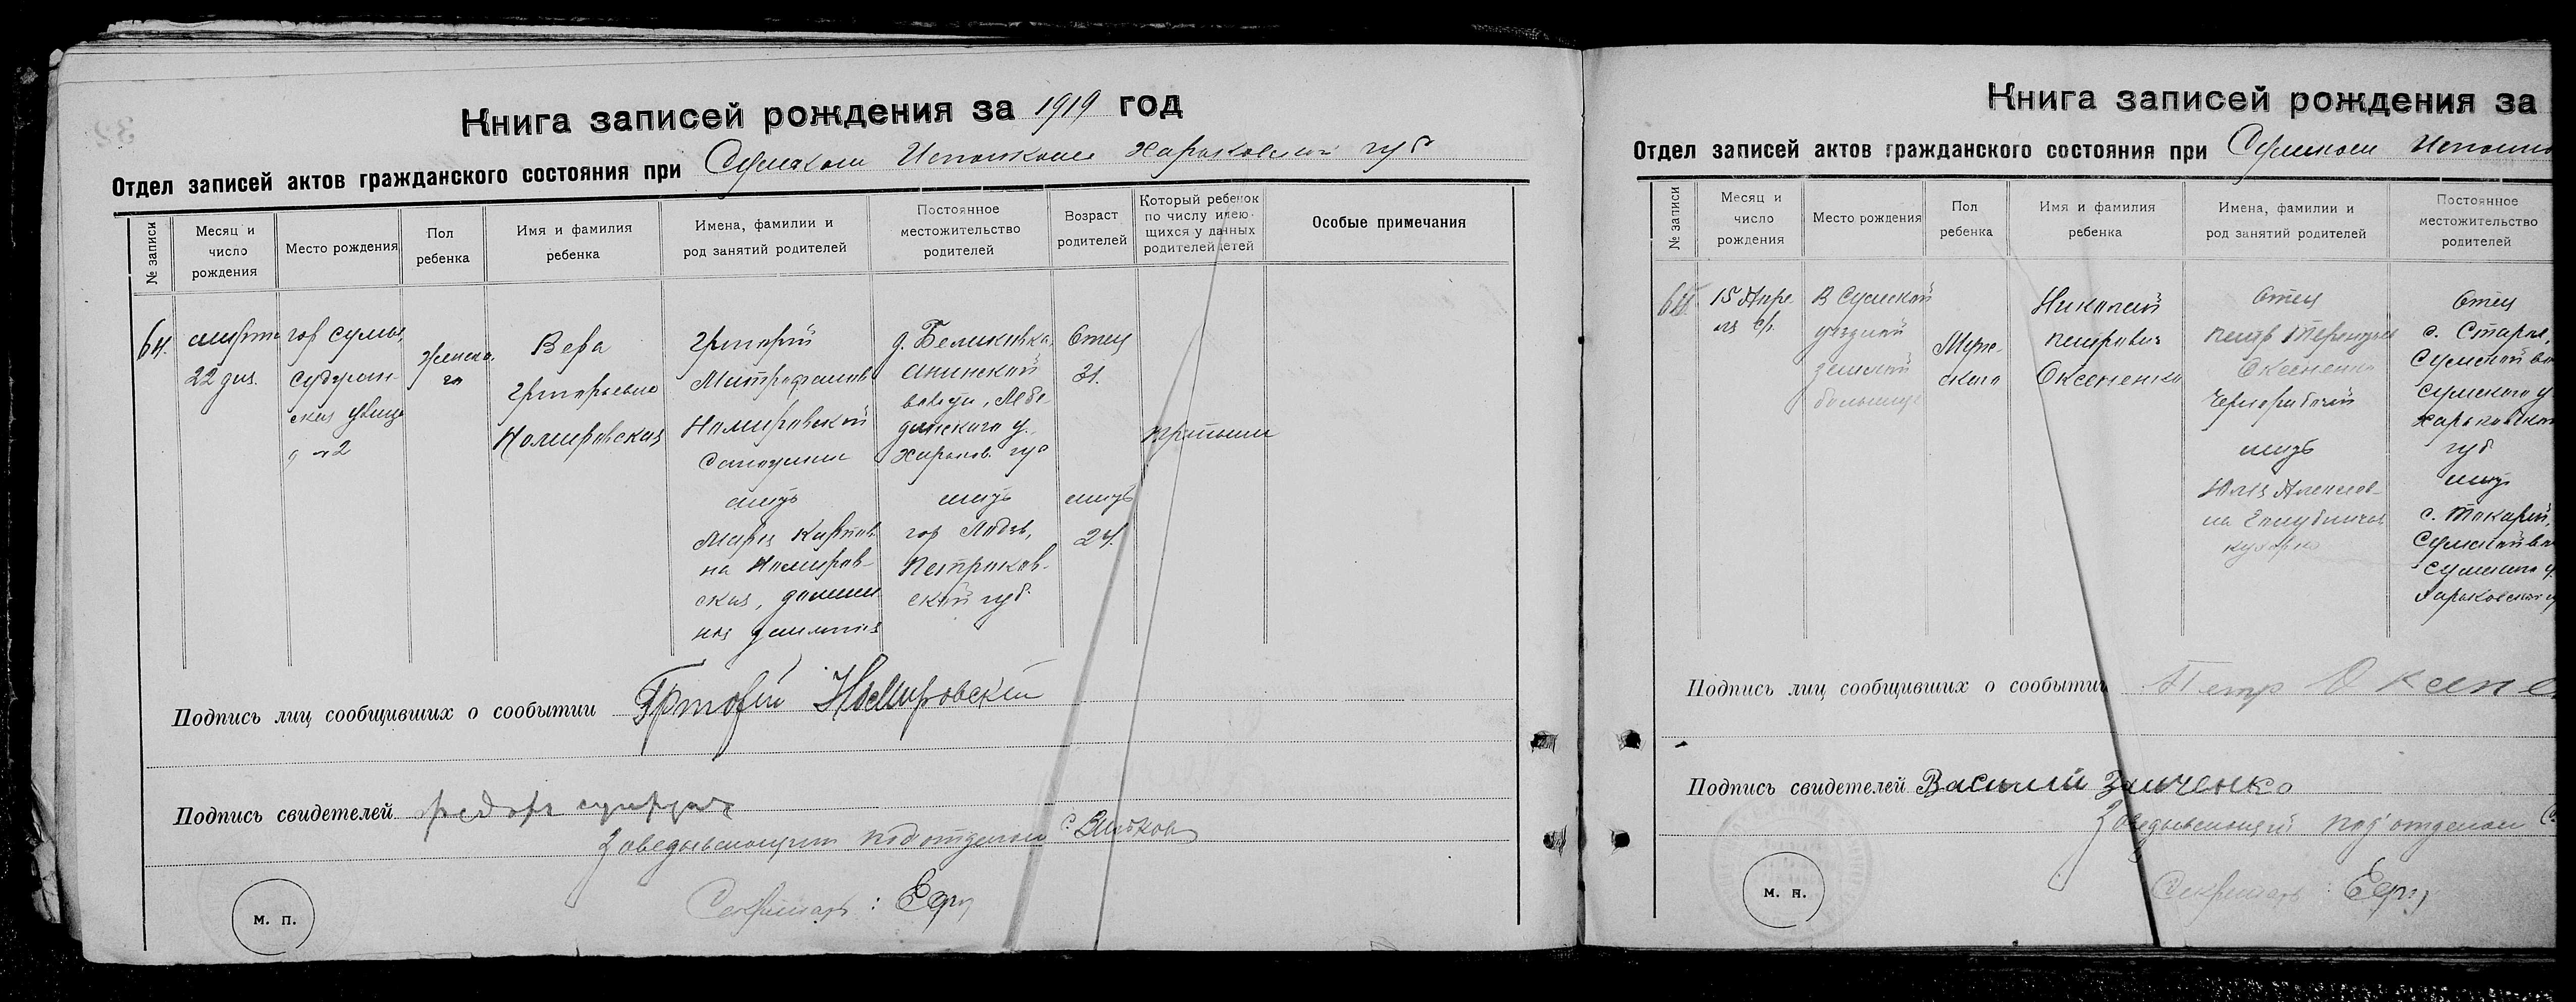 Книга записей рождения за 1919 год
Отдел записей актов гражданского состояния при Сумском Исполкоме Харьковской губ
№ записи
Месяц и число рождения
Место рождения
Пол ребенка
Имя и фамилия ребенка
Имена, фамилии и род занятий родителей
Постоянное местожительство родителей
Возраст родителей
Который ребенок по числу имеющихся у данных родителей детей
Особые примечания
64.
марта
22 дня.
гор Сумы,
Суджан-
ская улица
д № 2
Женска-
го
Вера
Григорьевна
Номировская
Григорий
Митрофанов
Номировский
мать
Мария Карпов-
на Номиров-
ская, домаш
няя
д. Беликовка,
волости, Лебе-
динского у.,
Харьков. губ
мать
гор Лодзь,
Петроков-
ской губ.
Отец
31.
мать
24.
третий
Подпись лиц сообщивших о сообытии Григорий Номировский
Подпись свидетелей Федор
Заведывающий подотделом
Секретарь:
М. П.
Книга записей рождения за
Отдел записей актов гражданского состояния при Сумском Исполко
№ записи
Месяц и число рождения
Место рождения
Пол ребенка
Имя и фамилия ребенка
Имена, фамилии и род занятий родителей
Постоянное местожительство родителей
15 Апре-
ля с/г.
В Сумской
уездной
земской
больнице
Муж-
ского
Николай
Петрович
Оксененко
Отец
Петр Терентьев
Оксененко
Чернорабочий
мать
Юлия Алексеев-
на
кухарка
Отец
с. Старое,
Сумской во
Сумского у
Харьковской
губ
мать
с. Токари,
Сумской во
Сумского у.
Харьковской г
Подпись лиц сообщивших о сообытии Петр Оксене
Подпись свидетелей Василий Заиченко
Заведывающий подотделом С.
Секретарь:
М. П.